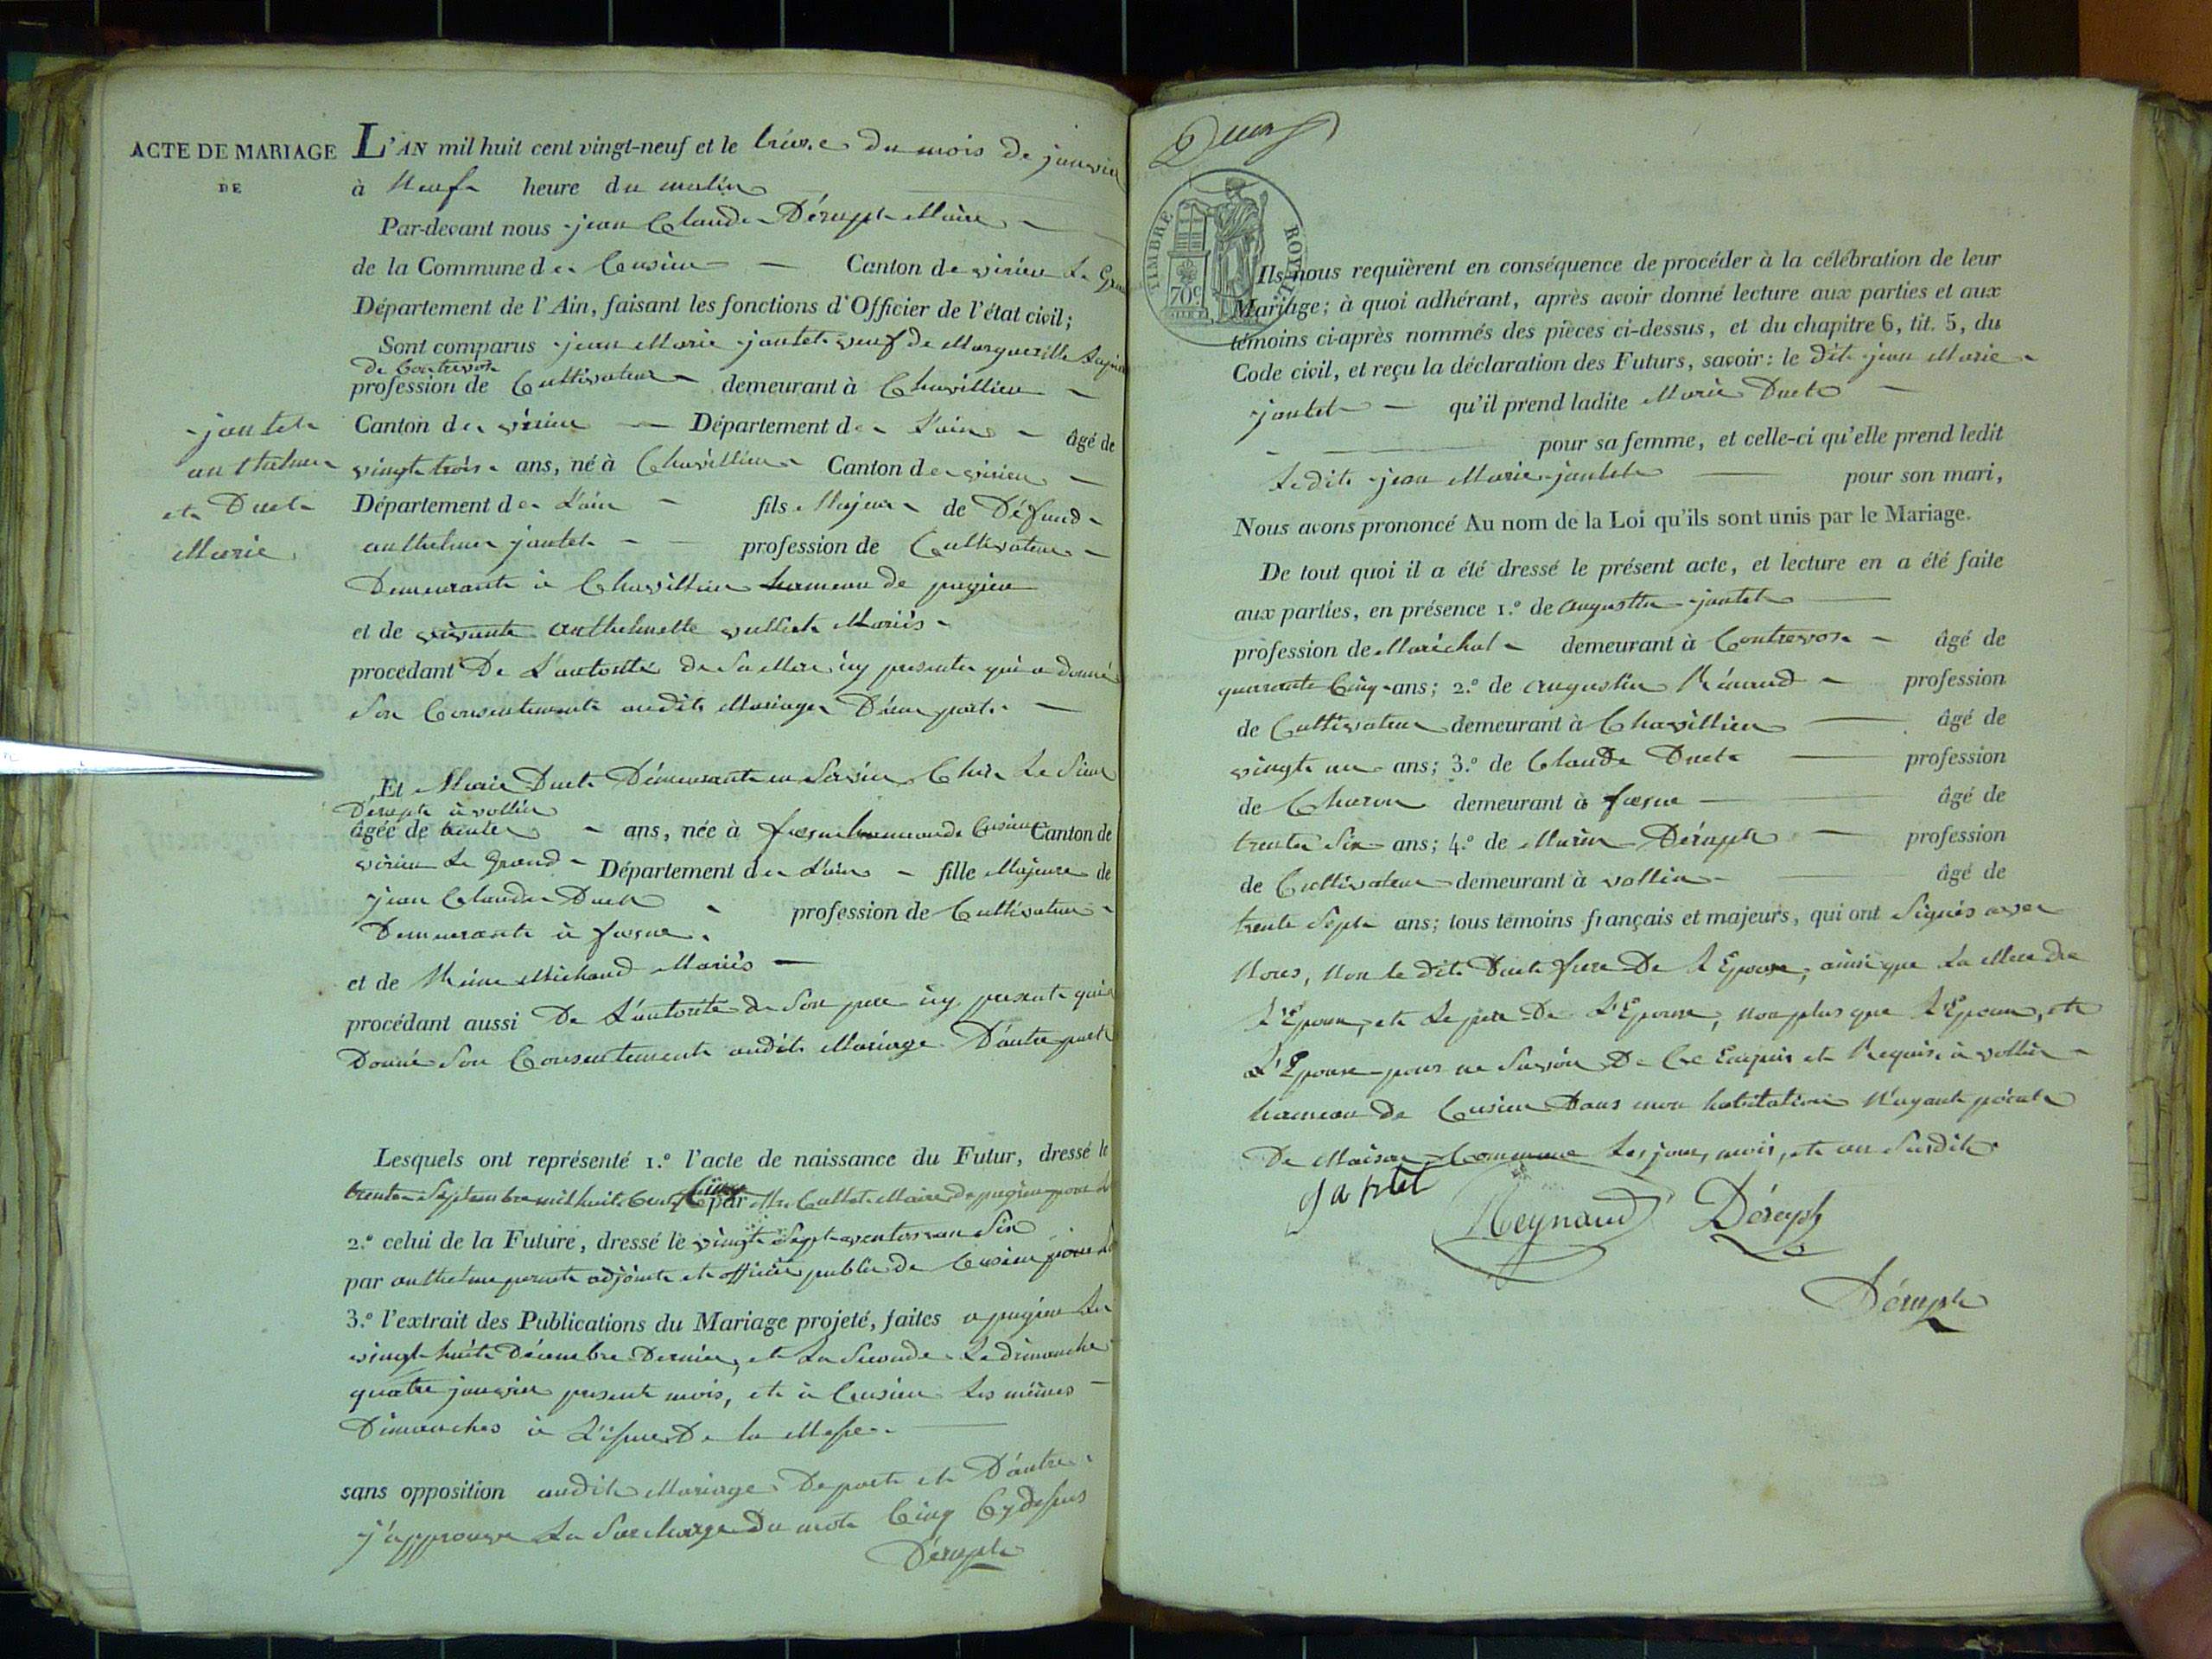 ACTE DE MARIAGE
DE
jantet
anthelme
et Duet
Marie
L'AN mil huit cent vingt-neuf et le treize du mois de janvier
à Neuf heure du matin
Par-devant nous jean Claude Déruph Maire
de la Commune de Cusieu Canton de virieu Le Grand
Département de l'Ain, faisant les fonctions d'Officier de l'état civil;
Sont comparus jean Marie jantet veuf de Marguerille
de Contrevos
profession de Cultivateur demeurant à Chavillieu
Canton de virieu Département de L'ain âgé de
vingt trois ans, né à Chavillieu Canton de virieu
Département de L'ain fils Majeur de Défund
anthelme jantet profession de Cultivateur
Demeurante à Chavillieu hameau de pugieu
et de vivante anthelmette vulliet Mariés
procédant De L'autorité de Sa Mere icy presente qui a donné
Son Consentement audit Mariage D'une part
Et Marie Duet Demeurante en Service Chés Le Sieur
Déruph à vollien
âgée de trente ans, née à fosne hameau de Cusieu Canton de
virieu Le Grand Département de L'ain fille Majeure de
jean Claude Duet profession de Cultivateur
Demeurante à fosne
et de Reine Michaud Mariés
procédant aussi De L'autorité de Son pere icy present qui a
Donné Son Consentement audit Mariage D'autre part
Lesquels ont représenté 1.º l'acte de naissance du Futur, dressé le
trente Septembre mil huit Cent Cinq par Mr. Cullet Maire de pugieu
2.º celui de la Future, dressé le vingt Sept ventos an Six
par anthelme adjoint et officier public de Cusieu
3.º l'extrait des Publications du Mariage projeté, faites a pugieu Le
vingt huit Décembre Dernier, et La Seconde Le dimanche
quatre janvier present mois, et à Cusieu Les mêmes
Dimanches à L'issue De la Messe
sans opposition audit Mariage De part et D'autre
j'approuve La Surcharge Du mot Cinq Cy dessus
Déruph
TIMBRE ROYAL
70c
Ils nous requièrent en conséquence de procéder à la célébration de leur
Mariage; à quoi adhérant, après avoir donné lecture aux parties et aux
témoins ci-après nommés des pièces ci-dessus, et du chapitre 6, tit. 5, du
Code civil, et reçu la déclaration des Futurs, savoir: le dit jean Marie
jantet qu'il prend ladite Marie Duet
pour sa femme, et celle-ci qu'elle prend ledit
Le dit jean Marie jantet pour son mari,
Nous avons prononcé Au nom de la Loi qu'ils sont unis par le Mariage.
De tout quoi il a été dressé le présent acte, et lecture en a été faite
aux parties, en présence 1.º de augustin jantet
profession de Maréchal demeurant à Contrevos âgé de
quarante Cinq ans; 2.º de augustin Rénaud profession
de Cultivateur demeurant à Chavillieu âgé de
vingt un ans; 3.º de Claude Duet profession
de Charon demeurant à fosne âgé de
trente Six ans; 4.º de Marin Déruph profession
de Cultivateur demeurant à vollien âgé de
trente Sept ans; tous témoins français et majeurs, qui ont Signés avec
Nous, Non le dit Duet frere De L'Epouse, ainsi que La Mere de
L'Epoux, et Le pere De L'Epouse, non plus que L'Epoux, et
L'Epouse pour ne Savoir De Ce Enquis et Requis à vollien
hameau de Cusieu Dans mon habitation N'ayant point
De Maison Commune Les jour, mois, et an Susdit
jantet
Reynaud
Déruph
Déruph